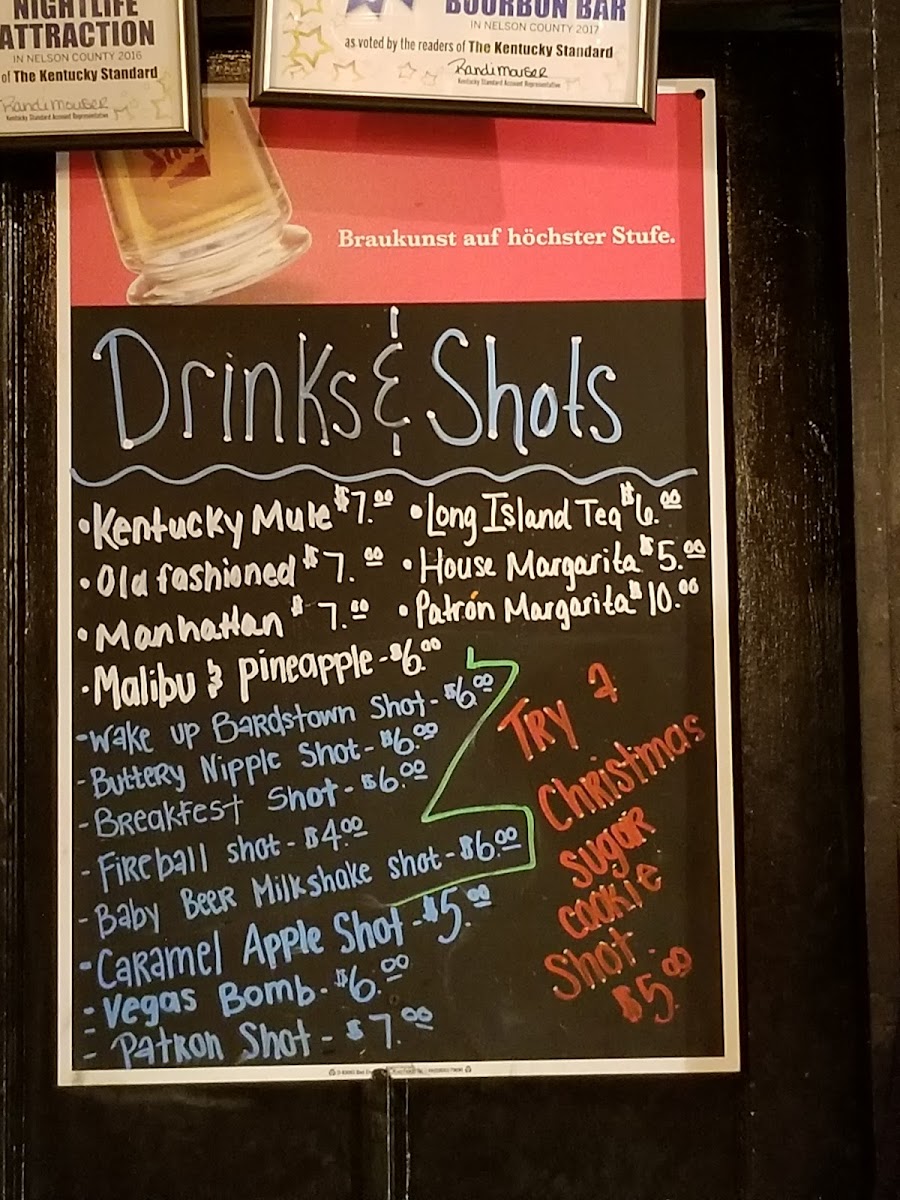 NIGHTLIFE
ATTRACTION
IN NELSON COUNTY 2016
of The Kentucky Standard
Randi Mouser
Kentucky Standard Account Representative
BOURBON BAR
IN NELSON COUNTY 2017
as voted by the readers of The Kentucky Standard
Randi Mouser
Kentucky Standard Account Representative
Braukunst auf höchster Stufe.
Drinks & Shots
•Kentucky Mule $7.00
•Old fashioned $7.00
•Manhattan $7.00
•Malibu & pineapple-$6.00
•Long Island Tea $6.00
•House Margarita $5.00
•Patrón Margarita $10.00
-Wake up Bardstown Shot-$6.00
-Buttery Nipple Shot-$6.00
-Breakfest Shot-$6.00
-Fireball shot-$4.00
-Baby Beer Milkshake shot-$6.00
-Caramel Apple Shot-$5.00
-Vegas Bomb-$6.00
-Patron Shot-$7.00
Try a
Christmas
sugar
cookie
Shot
$5.00